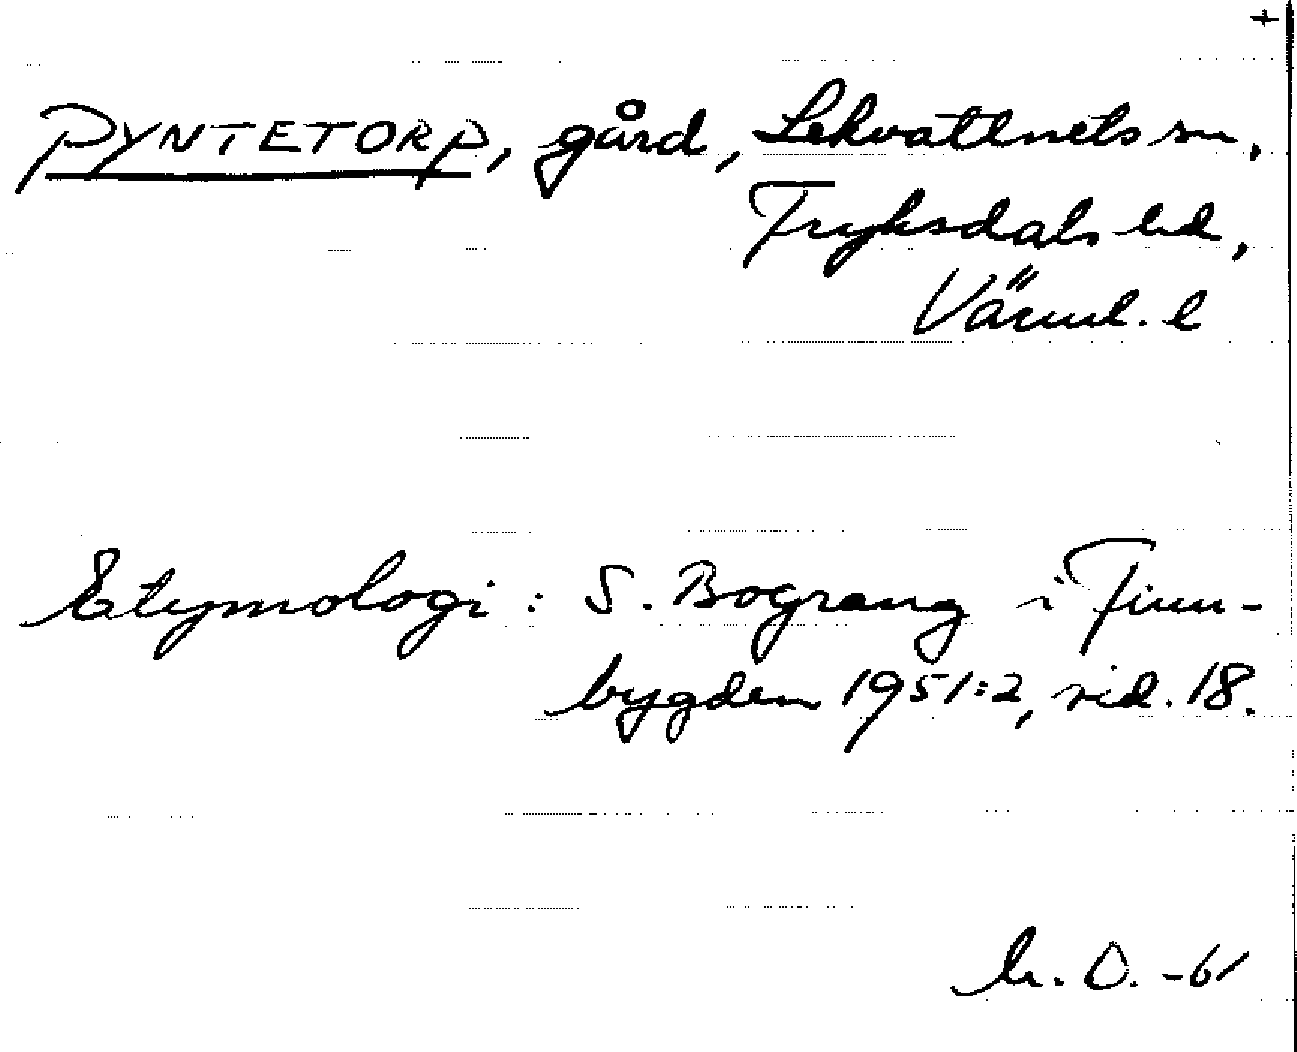 +
PYNTETORP, gård, Lekvattnets sn,
Fryksdals hd,
Värml. l
Etymologi: S. Bograng i Finn-
bygden 1951:2, sid. 18.
D. -61